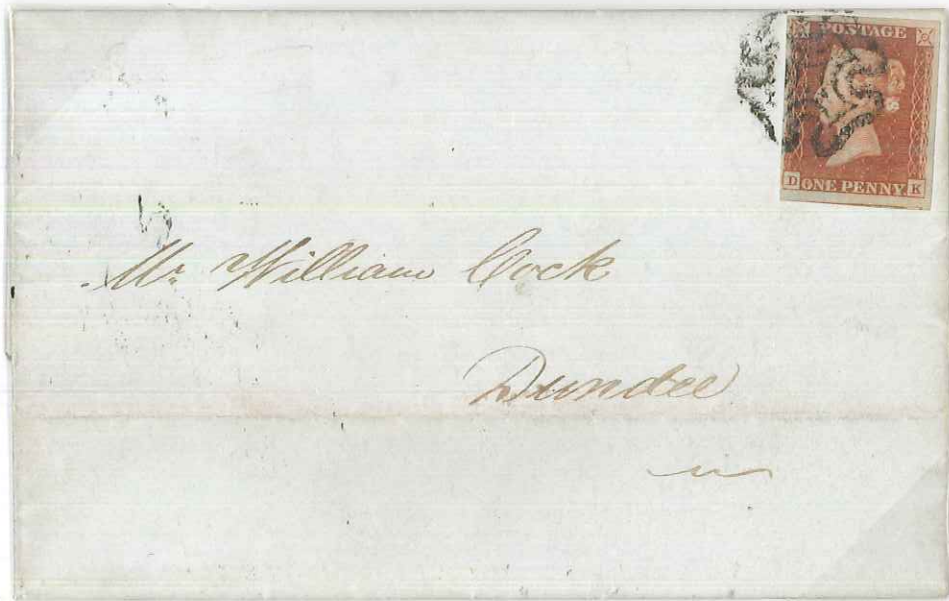 POSTAGE
D ONE PENNY K
Mr William Cock
Dundee